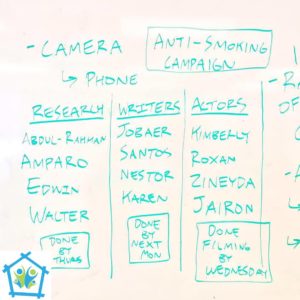 - CAMERA
↳ PHONE
ANTI-SMOKING
CAMPAIGN
RESEARCH
ABDUL-RAHMAN
AMPARO
EDWIN
WALTER
DONE
BY
THURS
WRITERS
JOBAER
SANTOS
NESTOR
KAREN
DONE
BY
NEXT
MON
ACTORS
KIMBERLY
ROXAN
ZINEYDA
JAIRON
DONE
FILMING
BY
WEDNESDAY